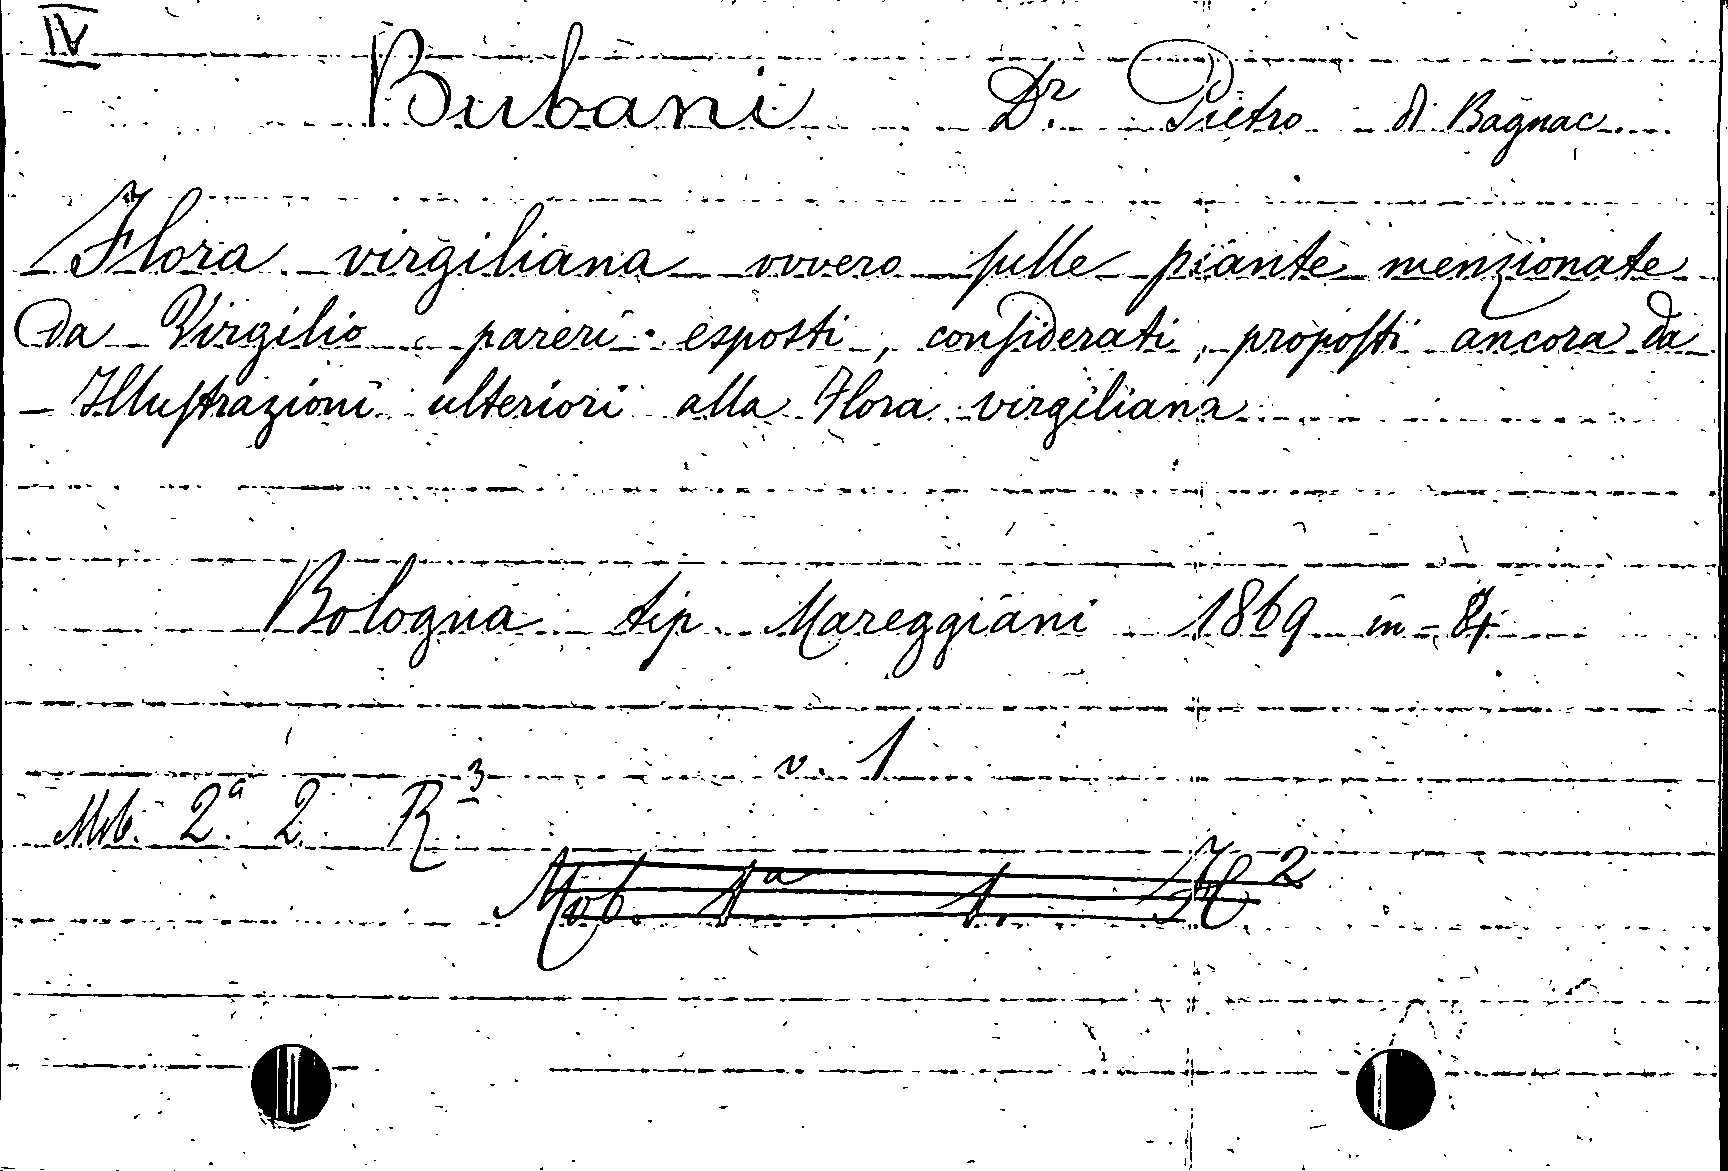 IV
Bubani Dr. Pietro di Bagnac...
Flora virgiliana ovvero sulle piante menzionate
da Virgilio pareri esposti, considerati, proposti ancora da
- Illustrazioni ulteriori alla Flora virgiliana
Bologna tip. Mareggiani 1869 in-8
v. 1
Mob. 2a. 2. R. 3
Mob. 1a 1. H 2